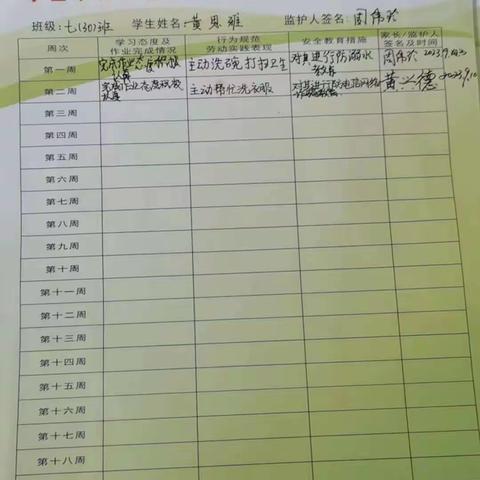 班级:七(30)班 学生姓名:黄恩雅 监护人签名:周伟玲
周次 学习态度及作业完成情况 行为规范劳动实践表现 安全教育措施 家长/监护人签名及时间
第一周 完成作业态度积极认真 主动洗碗打扫卫生 对其进行防溺水教育 周伟玲 2023.9.
第二周 完成作业态度积极认真 主动帮忙洗衣服 对其进行防电信网络诈骗教育 黄兴德 2023.9.10
第三周
第四周
第五周
第六周
第七周
第八周
第九周
第十周
第十一周
第十二周
第十三周
第十四周
第十五周
第十六周
第十七周
第十八周